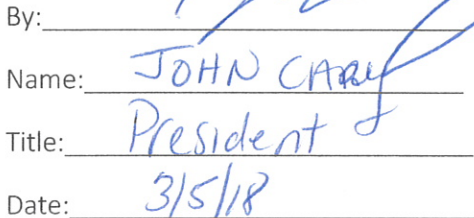 By:
Name: JOHN CARY
Title: President
Date: 3/5/18